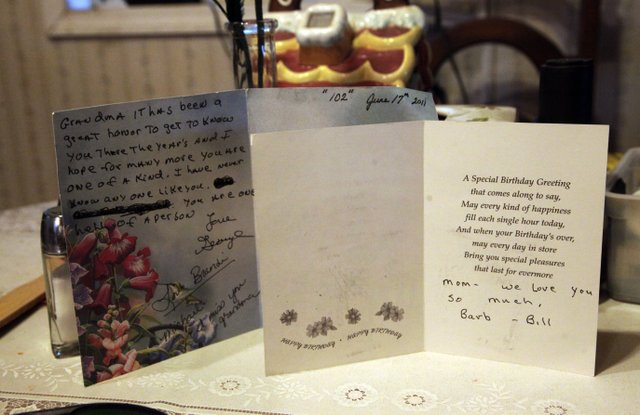 Grandma it has been a
great honor to get to know
you there the year's and I
hope for many more you are
one of a kind. I have never
know any one like you.
You are one
hell of a person
Love
George
Brandi
miss you
Grandma
"102" June 17th 2011
Happy Birthday • Happy Birthday
A Special Birthday Greeting
that comes along to say,
May every kind of happiness
fill each single hour today,
And when your Birthday's over,
may every day in store
Bring you special pleasures
that last for evermore
Mom- we love you
so much,
Barb - Bill